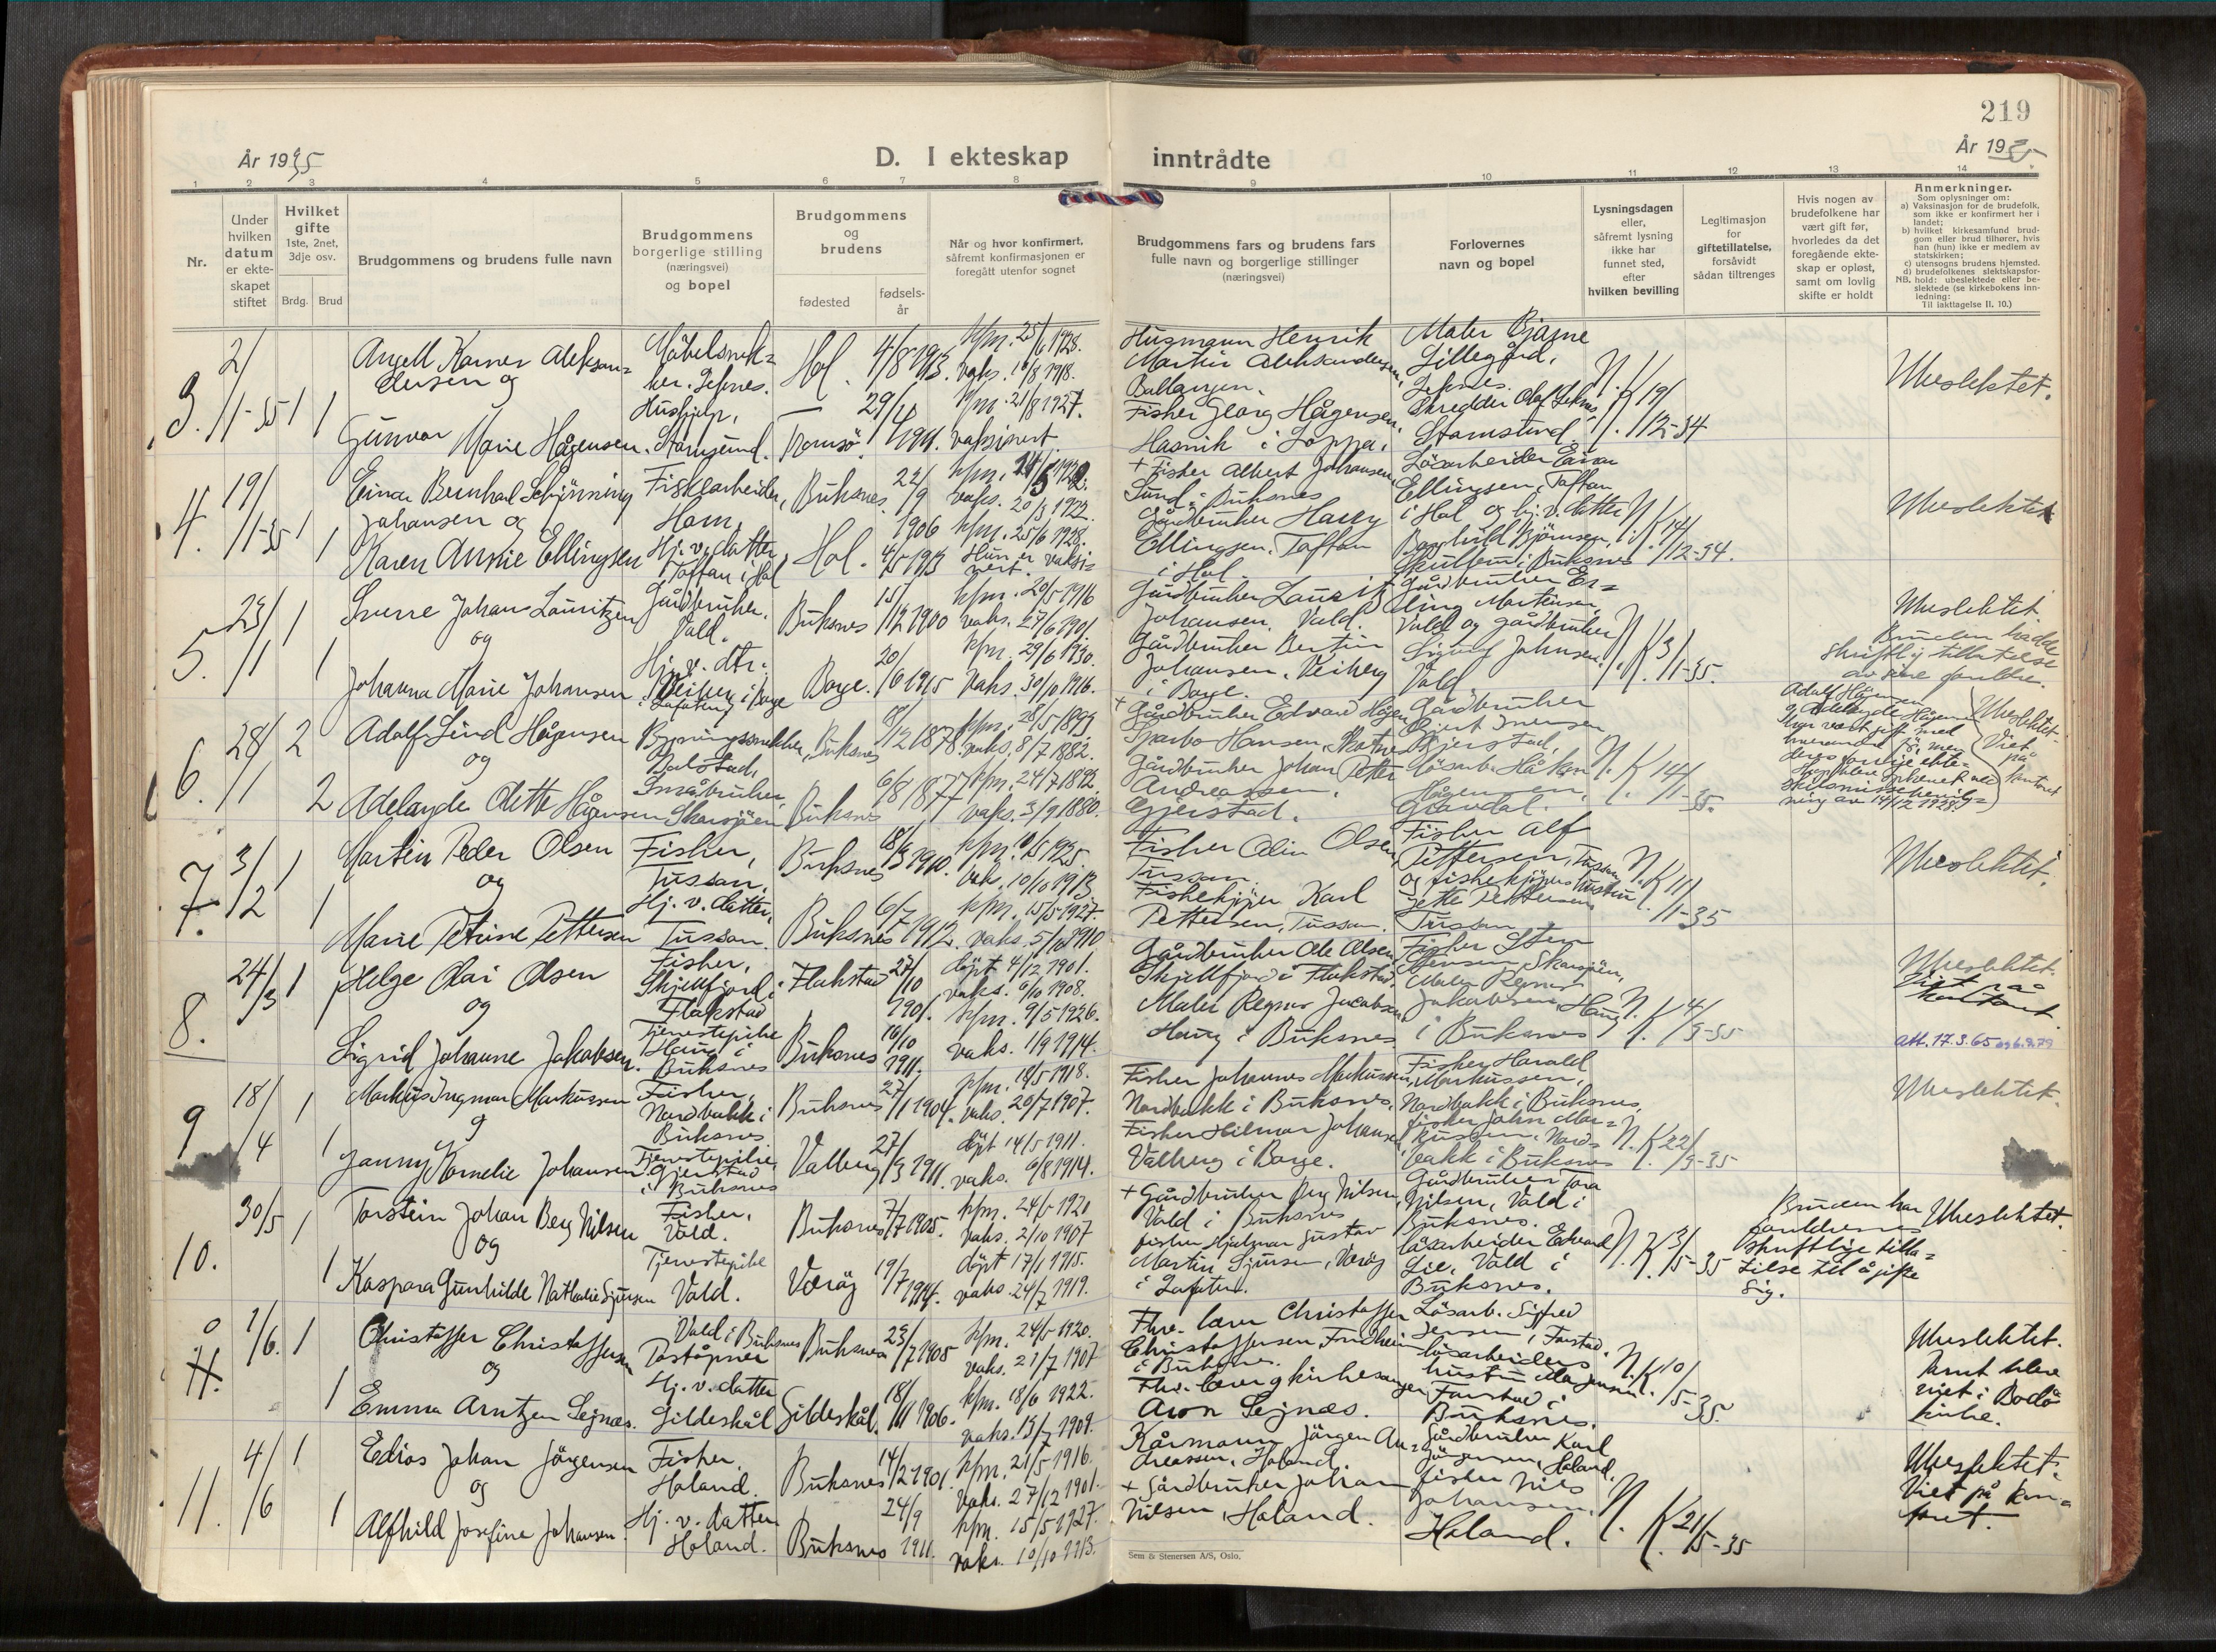 219
År 1935
D. I ekteskap
inntrådte
År 1935
1 2 3 4 5 6 7 8 9 10 11 12 13 14
Nr.
Under
hvilken
datum
er ekte-
skapet
stiftet
Hvilket
gifte
1ste, 2net,
3dje osv.
Brdg. Brud
Brudgommens og brudens fulle navn
Brudgommens
borgerlige stilling
(næringsvei)
og bopel
Brudgommens
og
brudens
fødested
fødsels-
år
Når og hvor konfirmert,
såfremt konfirmasjonen er
foregått utenfor sognet
Brudgommens fars og brudens fars
fulle navn og borgerlige stillinger
(næringsvei)
Forlovernes
navn og bopel
Lysningsdagen
eller,
såfremt lysning
ikke har
funnet sted,
efter
hvilken bevilling
Legitimasjon
for
giftetillatelse,
forsåvidt
sådan tiltrenges
Hvis nogen av
brudefolkene har
vært gift før,
hvorledes da det
foregående ekte-
skap er opløst,
samt om lovlig
skifte er holdt
Anmerkninger.
Som oplysninger om:
a) Vaksinasjon for de brudefolk,
som ikke er konfirmert her i
landet;
b) hvilket kirkesamfund brud-
gom eller brud tilhører, hvis
han (hun) ikke er medlem av
statskirken;
c) utensogns brudens hjemsted.
d) brudefolkenes slektskapsfor-
NB. hold: ubeslektede eller be-
slektede (se kirkebokens inn-
ledning:
Til iakttagelse II, 10.)
3. 2/1-35 1 1
Angell Karner Aleksan=
dersen og
Gunvor Marie Hågensen.
Møbelsnek=
ker. Leknes.
Hushjelp,
Stamsund.
Hol. 4/8 1913.
Tromsø. 29/4 1911.
kfm. 25/6 1928.
vaks. 10/8 1918.
kfm. 21/8 1927.
vaksinert
Husmann Henrik
Martin Aleksandersen,
Ballangen.
Fisker Georg Hågensen,
Hasvik i Loppa.
Maler Bjarne
Lillegård,
Leknes.
Skredder Olaf Leknes,
Stamsund.
N. K. 19/12-34
Ubeslektet.
4. 19/1-35 1 1
Einar Bernhard Schjönning
Johansen og
Karen Annie Ellingsen
Fiskearbeider,
Ham.
Hj. v. datter,
Taftan i Hol
Buksnes. 22/9 1906
Hol. 4/5 1913
vaks. 20/3 1922.
kfm. 25/6 1928.
Hun er vaksi=
nert.
+ Fisker Albert Johansen,
Sund i Buksnes
Gårdbruker Harry
Ellingsen, Taftan
i Hol
Lösarbeider Einar
Ellingsen, Taftan
i Hol og hj. v. datter
Borghild Björnsen,
i Buksnes
N. K. 14/12-34.
Ubeslektet
5. 23/1 1 1
Sverre Johans Lauritzen
og
Johanna Marie Johansen
Gårdbruker.
Vald.
Hj. v. dtr.
i Borge
Buksnes 15/12 1900
Borge. 20/6 1915
kfm. 20/5 1916
vaks. 27/6 1901
kfm. 29/6 1930.
vaks. 30/10 1916.
Gårdbruker Laurits
Johansen. Vald.
Gårdbruker Bertin
Johansen, Veiberg
i Borge.
Gårdbruker Er=
ling Martinsen,
Vald og gårdbruker
Sigurd Johnsen,
Vald
N. K. 3/1-35.
Ubeslektet.
Bruden hadde
skriftlig tillatelse
av sine foreldre.
6. 28/1 2 2
Adolf Lind Hågensen
og
Adelayde Olette Hågensen
Bygningssnekker,
Balstad,
Småbruker,
Skarsjöen
Buksnes 8/12 1878
Buksnes 6/8 1877
kfm. 28/5 1893
vaks. 8/7 1882.
kfm. 24/7 1892.
vaks. 3/9 1880.
+ Gårdbruker Edvard Hågen
Sparbo Hansen,
Gårdbruker Johan Petter
Andreassen,
Gjerstad.
Gårdbruker
Gjerstad,
lösarb. Håkon
Hågensen,
N. K. 14/1-35.
Adolf Hågensen
og Adelayde Hågensen
har vært gift med
hverandre för, men
deres forrige ekte=
skap blev ophevet ved
skilsmissebevilg=
ning av 14/12 1928.
Ubeslektet.
Viet
på
kontoret
7. 3/2 1 1
Martin Peder Olsen
og
Marie Petrine Pettersen
Fisker,
Tussan.
Hj. v. datter,
Tussan.
Buksnes 18/3 1910.
Buksnes 6/7 1912.
kfm. 10/5 1925.
vaks. 10/10 1913.
kfm. 15/5 1927.
vaks. 5/10 1910
Fisker Olin Olsen,
Tussan.
Fiskekjöper Karl
Pettersen, Tussan.
Fisker Alf
Pettersen, Tussan
og fiskekjöpers hustru
Jette Pettersen
Tussan
N. K. 11/1-35
Ubeslektet.
8. 24/3 1 1
Helge Olai Olsen
og
Sigrid Johanne Jakobsen.
Fisker,
Skjellfjord i
Flakstad
Tjenestepike
Haug i
Buksnes
Flakstad 27/10 1901.
Buksnes 10/10 1911.
döpt 4/12 1901.
vaks. 6/10 1908.
kfm. 9/5 1926.
vaks. 1/9 1914.
Gårdbruker Ole Olsen,
Skjellfjord i Flakstad
Maler Regnor Jacobsen
Haug i Buksnes
Fisker Sten
Jensen, Skarsjöen,
Maler Regnor
Jakobsen, Haug
i Buksnes
N. K. 4/3-35
Ubeslektet.
Viet på
kontoret.
att. 17.3.65 og 6.9.79
9 18/4 1 1
Markus Ingmar Markussen
og
Janny Kornelie Johansen
Fisker,
Nordbakk i
Buksnes.
Tjenestepike,
Gjerstad
i Buksnes
Buksnes 27/1 1904.
Valberg 27/3 1911.
kfm. 18/5 1918.
vaks. 20/7 1907.
döpt 14/5 1911.
vaks. 6/8 1914.
Fisker Johannes Markussen,
Nordbakk i Buksnes,
Fisker Hilmar Johansen
Valberg i Borge.
Fisker Harald
Markussen,
Nordbakk i Buksnes,
fisker John Mar=
kussen, Nord=
bakk i Buksnes
N. K. 22/3-35
Ubeslektet.
10. 30/5 1 1
Torstein Johan Berg Nilsen
og
Kaspara Gunhilde Nathalie Sjursen
Fisker,
Vald.
Tjenestepike
Vald.
Buksnes 7/7 1905.
Væröy 19/7 1914.
kfm. 24/5 1920
vaks. 2/10 1907
döpt 17/1 1915.
vaks. 24/7 1919.
+ Gårdbruker Berg Nilsen,
Vald i Buksnes
fisker Hjalmar Gustav
Martin Sjursen, Væröy
i Lofoten.
Gårdbruker Tora
Nilsen, Vald i
Buksnes.
lösarbeider Edvard
Lie, Vald i
Buksnes.
N. K. 3/5-35
Bruden har
foreldrenes
skriftlige tilla=
telse til å gifte
sig.
Ubeslektet.
0 11. 1/6. 1 1
Christoffer Christoffersen
og
Emma Arntzen Sejnæs.
Vald i Buksnes
Poståpner
Hj. v. datter
Gildeskål
Buksnes 23/7 1905
Gildeskål. 18/11 1906.
kfm. 24/5 1920.
vaks. 21/7 1907
kfm. 18/6 1922.
vaks. 13/7 1909.
Fhv. lærer Christoffer
Christoffersen, Fredheim
i Buksnes.
Fhv. lærer og kirkesanger
Aron Sejnæs.
Lösarb. Sigfred
Jensen, Farstad.
lösarbeiders
hustru
Farstad i
Buksnes.
N. K. 10/5-35.
Ubeslektet.
Samt blev
viet i Bodö
kirke.
11. 4/6 1 1
Edias Johan Jörgensen
og
Alfhild Josefine Johansen.
Fisker.
Holand.
Hj. v. datter
Holand.
Buksnes 14/2 1901.
Buksnes 24/9 1911.
kfm. 21/5 1916.
vaks. 27/12 1901.
kfm. 15/5 1927.
vaks. 10/10 1913.
Kårmann Jörgen An=
dreassen, Holand.
+ Gårdbruker Johan
Nilsen, Holand.
Gårdbruker Karl
Jörgensen, Holand.
fisker Nils
Johansen.
Holand.
N. K. 21/5-35
Ubeslektet.
Viet på kon=
toret.
Sem & Stenersen A/S, Oslo.